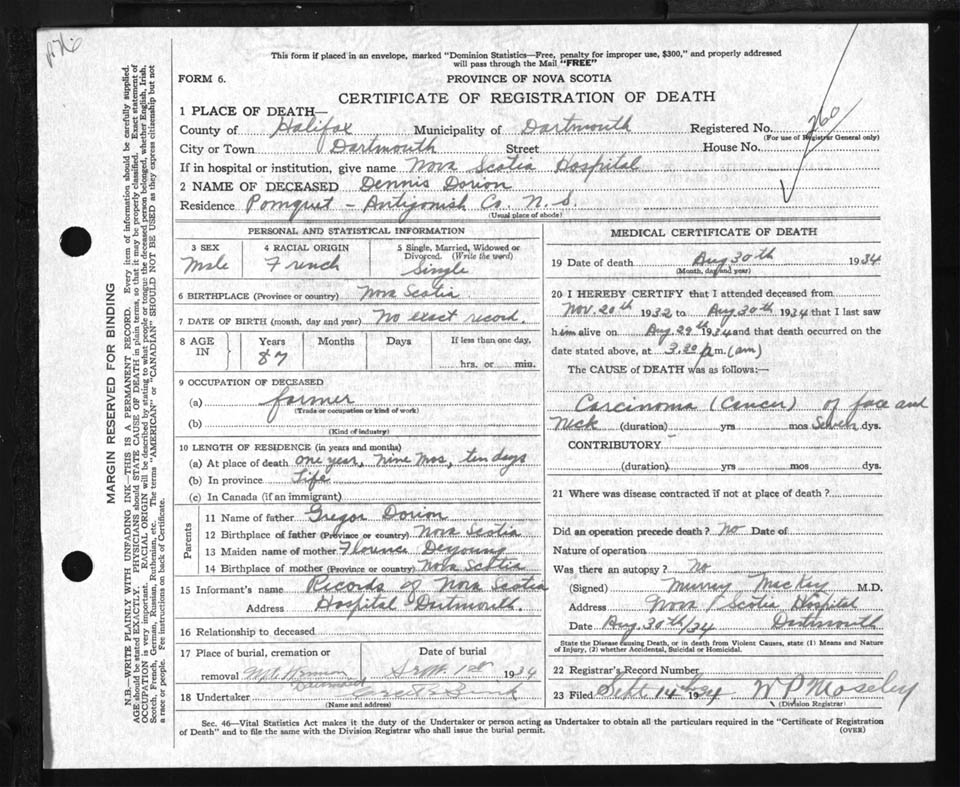 This form if placed in an envelope, marked "Dominion Statistics—Free, penalty for improper use, $300," and properly addressed
will pass through the Mail "FREE"
FORM 6.
PROVINCE OF NOVA SCOTIA
CERTIFICATE OF REGISTRATION OF DEATH
1 PLACE OF DEATH—
County of Halifax Municipality of Dartmouth Registered No. 260
(For use of Registrar General only)
City or Town Dartmouth Street House No.
If in hospital or institution, give name Nova Scotia Hospital
2 NAME OF DECEASED Dennis Dorion
Residence Pomquet - Antigonish Co. N. S.
(Usual place of abode)
PERSONAL AND STATISTICAL INFORMATION
3 SEX 4 RACIAL ORIGIN 5 Single, Married, Widowed or
Divorced. (Write the word)
Male French Single
6 BIRTHPLACE (Province or country) Nova Scotia
7 DATE OF BIRTH (month, day and year) No exact record.
8 AGE IN Years Months Days If less than one day,
87 hrs. or min.
9 OCCUPATION OF DECEASED
(a) farmer
(Trade or occupation or kind of work)
(b)
(Kind of industry)
10 LENGTH OF RESIDENCE (in years and months)
(a) At place of death one year, nine mos, ten days
(b) In province Life
(c) In Canada (if an immigrant)
Parents
11 Name of father Gregor Dorion
12 Birthplace of father (Province or country) Nova Scotia
13 Maiden name of mother Florence Deyoung
14 Birthplace of mother (Province or country) Nova Scotia
15 Informant's name Records of Nova Scotia
Address Hospital Dartmouth.
16 Relationship to deceased
17 Place of burial, cremation or Date of burial
removal Mt. Hermon Sept. 1st 1934
Dartmouth
18 Undertaker
(Name and address)
MEDICAL CERTIFICATE OF DEATH
19 Date of death Aug 30th 1934
(Month, day and year)
20 I HEREBY CERTIFY that I attended deceased from
Nov. 20th 1932 to Aug 30th 1934 that I last saw
him alive on Aug 29th 1934 and that death occurred on the
date stated above, at 3.30 p.m. (am)
The CAUSE of DEATH was as follows:—
Carcinoma (Cancer) of face and
Neck (duration) yrs mos Seven dys.
CONTRIBUTORY
(duration) yrs mos dys.
21 Where was disease contracted if not at place of death?
Did an operation precede death? No Date of
Nature of operation
Was there an autopsy? No
(Signed) Murray MacKay M.D.
Address Nova Scotia Hospital
Date Aug. 30th/34 Dartmouth
State the Disease Causing Death, or in Death from Violent Causes, state (1) Means and Nature
of Injury, (2) whether Accidental, Suicidal or Homicidal.
22 Registrar's Record Number
23 Filed Sept 14th 1934 W P Moseley
(Division Registrar)
Sec. 46—Vital Statistics Act makes it the duty of the Undertaker or person acting as Undertaker to obtain all the particulars required in the "Certificate of Registration
of Death" and to file the same with the Division Registrar who shall issue the burial permit. (OVER)
MARGIN RESERVED FOR BINDING
N.B.—WRITE PLAINLY WITH UNFADING INK—THIS IS A PERMANENT RECORD. Every item of information should be carefully supplied.
AGE should be stated EXACTLY. PHYSICIANS should STATE CAUSE OF DEATH in plain terms, so that it may be properly classified. Exact statement of
OCCUPATION is very important. RACIAL ORIGIN will be described by stating to what people or tongue the deceased person belonged, whether English, Irish,
Scotch, French, German, Russian, Ruthenian, etc. The terms "AMERICAN" or "CANADIAN" SHOULD NOT BE USED as they express citizenship but not
a race or people. Fee instructions on back of Certificate.